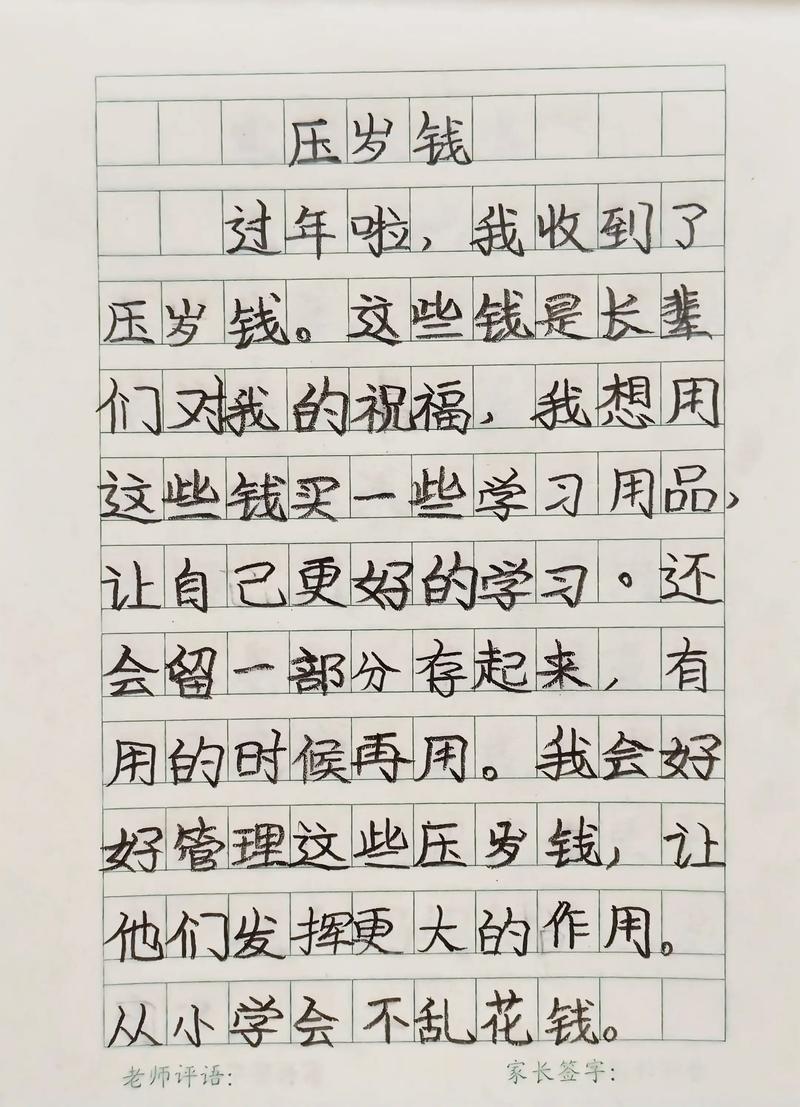 压岁钱
过年啦，我收到了
压岁钱。这些钱是长辈
们对我的祝福，我想用
这些钱买一些学习用品，
让自己更好的学习。还
会留一部分存起来，有
用的时候再用。我会好
好管理这些压岁钱，让
他们发挥更大的作用。
从小学会不乱花钱。
老师评语： 家长签字：